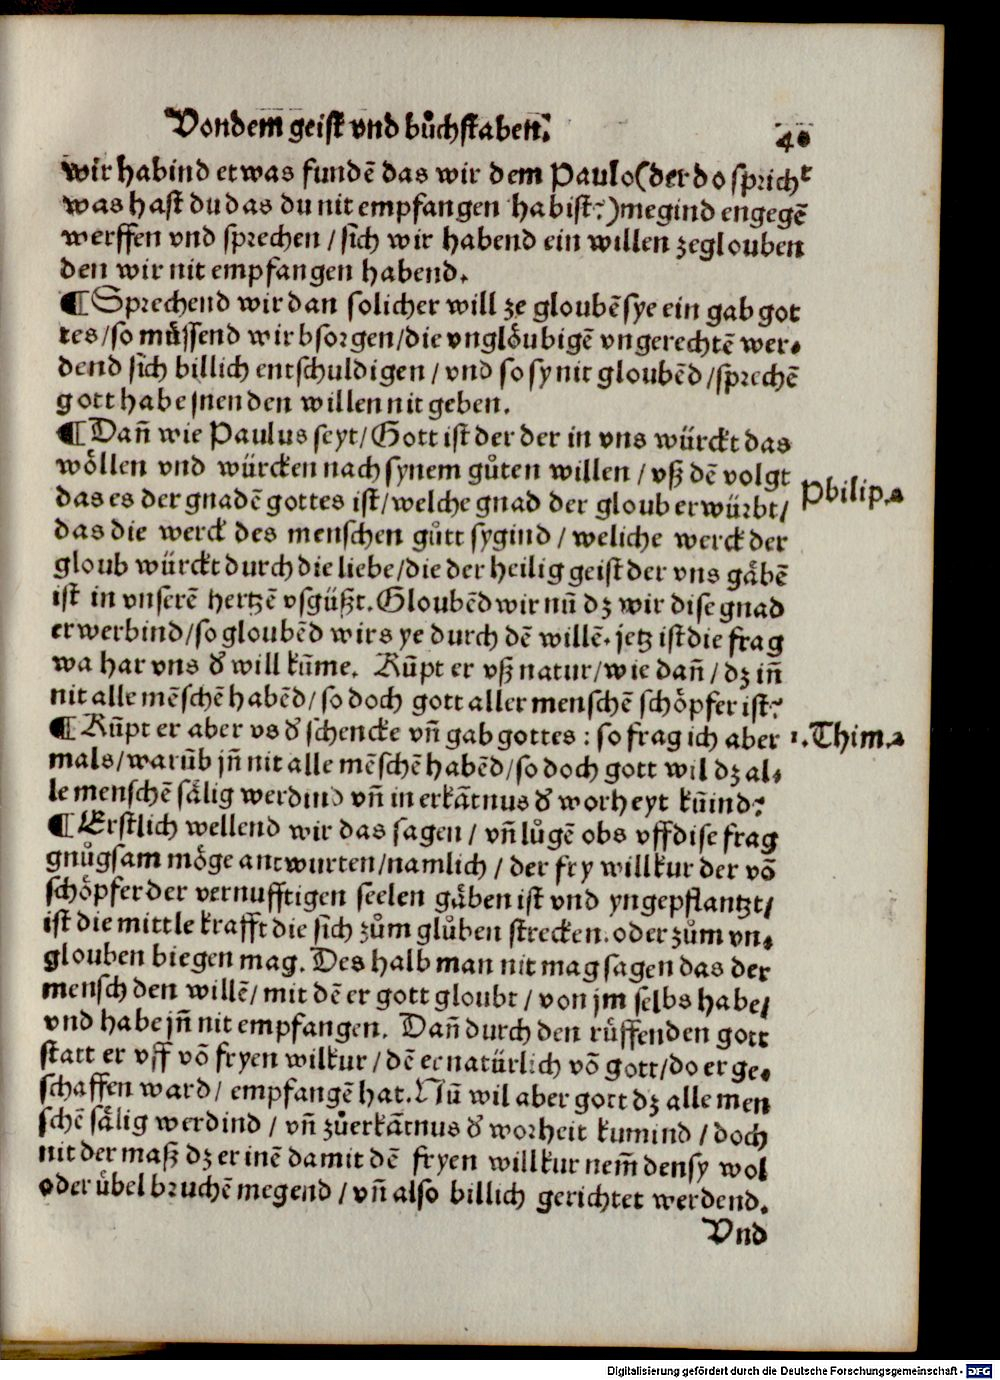 Vondem geist vnd bůchstaben.
40
wir habind etwas fundē das wir dem Paulo (der do spricht
was hast du das du nit empfangen habist?) megind engegē
werffen vnd sprechen / sich wir habend ein willen zeglouben
den wir nit empfangen habend.
¶ Sprechend wir dan solicher will ze gloubē sye ein gab got
tes / so müssend wir bsorgen / die vnglöubigē vngerechtē wer-
dend sich billich entschuldigen / vnd so sy nit gloubēd / sprechē
gott habe jnen den willen nit geben.
¶ Dañ wie Paulus seyt / Gott ist der der in vns würckt das
wöllen vnd würcken nach synem gůten willen / vß dē volgt
Philip. 2
das es der gnadē gottes ist / welche gnad der gloub erwürbt /
das die werck des menschen gůtt sygind / weliche werck der
gloub würckt durch die liebe / die der heilig geist der vns gäbē
ist in vnserē hertzē vsgüßt. Gloubēd wir nū dz wir dise gnad
erwerbind / so gloubēd wirs ye durch dē willē. jetz ist die frag
wa har vns d' will kūme. Kūpt er vß natur / wie dañ / dz iñ
nit alle mēschē habēd / so doch gott aller menschē schöpfer ist?
¶ Kūpt er aber vs d' schencke vñ gab gottes : so frag ich aber
1. Thim. 2
mals / warūb jñ nit alle mēschē habēd / so doch gott wil dz al-
le menschē sälig werdind vñ in erkātnus d' worheyt kūind?
¶ Erstlich wellend wir das sagen / vñ lůgē obs vff dise frag
gnůgsam möge antwurten / namlich / der fry willkur der vō
schöpfer der vernufftigen seelen gäben ist vnd yngepflantzt /
ist die mittle krafft die sich zům glůben strecken. oder zům vn-
glouben biegen mag. Des halb man nit mag sagen das der
mensch den willē / mit dē er gott gloubt / von jm selbs habe /
vnd habe jñ nit empfangen. Dañ durch den rüffenden gott
statt er vff vō fryen wilkur / dē er natürlich vō gott / do er ge-
schaffen ward / empfangē hat. Nū wil aber gott dz alle men
schē sälig werdind / vñ zůerkātnus d' worheit kumind / doch
nit der maß dz er inē damit dē fryen willkur nem̃ den sy wol
oder übel bruchē megend / vñ also billich gerichtet werdend.
Vnd
Digitalisierung gefördert durch die Deutsche Forschungsgemeinschaft - DFG